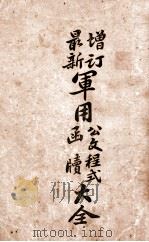 增订
最新
軍用
公文程式
函牘
大全